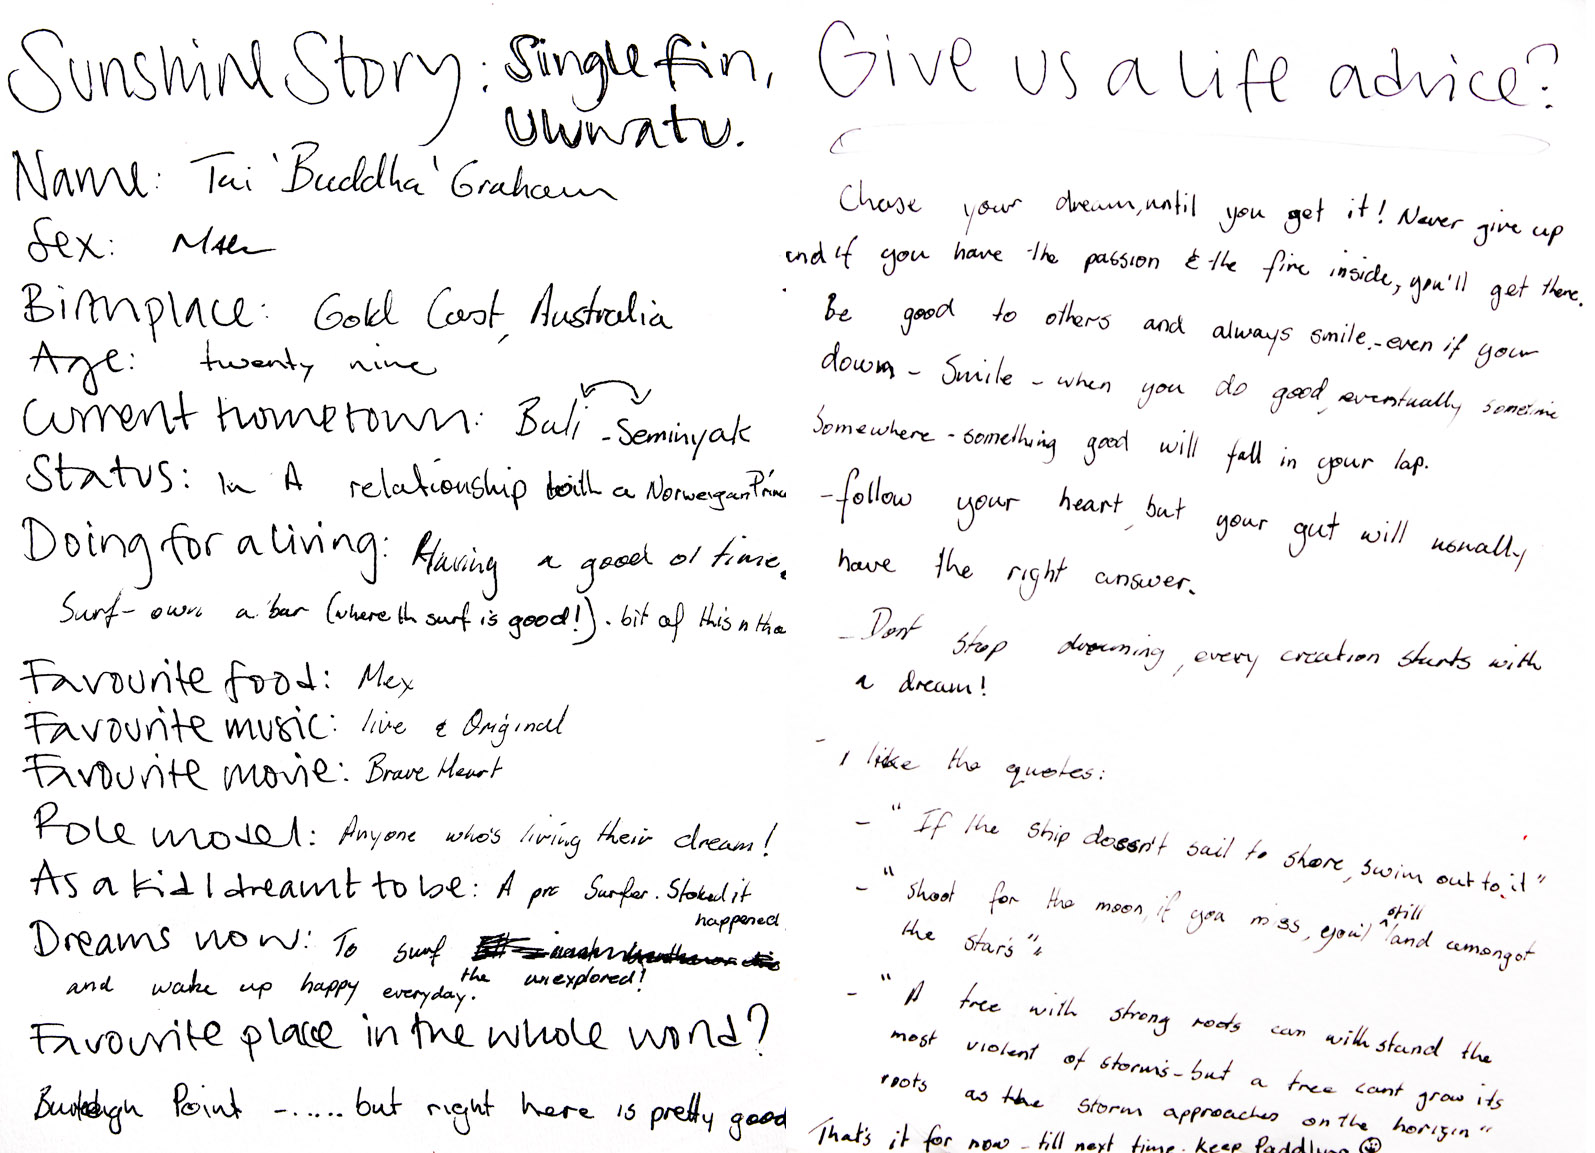 Sunshine Story: Single fin,
Uluwatu.
Name: Tai 'Buddha' Graham
Sex: Male
Birthplace: Gold Coast, Australia
Age: twenty nine
Current hometown: Bali - Seminyak
Status: In A relationship with a Norweigan Princ
Doing for a living: Having a good ol time.
Surf - own a bar (where th surf is good!). bit of this n tha
Favourite food: Mex
Favourite music: live & Original
Favourite movie: Brave Heart
Role model: Anyone who's living their dream!
As a kid I dreamt to be: A pro Surfer. Stoked it
happened
Dreams now: To surf
the unexplored!
and wake up happy everyday.
Favourite place in the whole world?
Burleigh Point -..... but right here is pretty good
Give us a life advice?
Chase your dream, until you get it! Never give up
and if you have the passion & the fire inside, you'll get there.
Be good to others and always smile. - even if your
down - Smile - when you do good, eventually sometime
Somewhere - something good will fall in your lap.
- follow your heart, but your gut will usually
have the right answer.
- Dont stop dreaming, every creation starts with
a dream!
- I like the quotes:
- "If the ship doesn't sail to shore, swim out to it"
- "shoot for the moon, if you miss, you'll still land amongst
the stars"
- "A tree with strong roots can withstand the
most violent of storms - but a tree cant grow its
roots as the storm approaches on the horizin"
That's it for now - till next time. Keep Paddling ☺